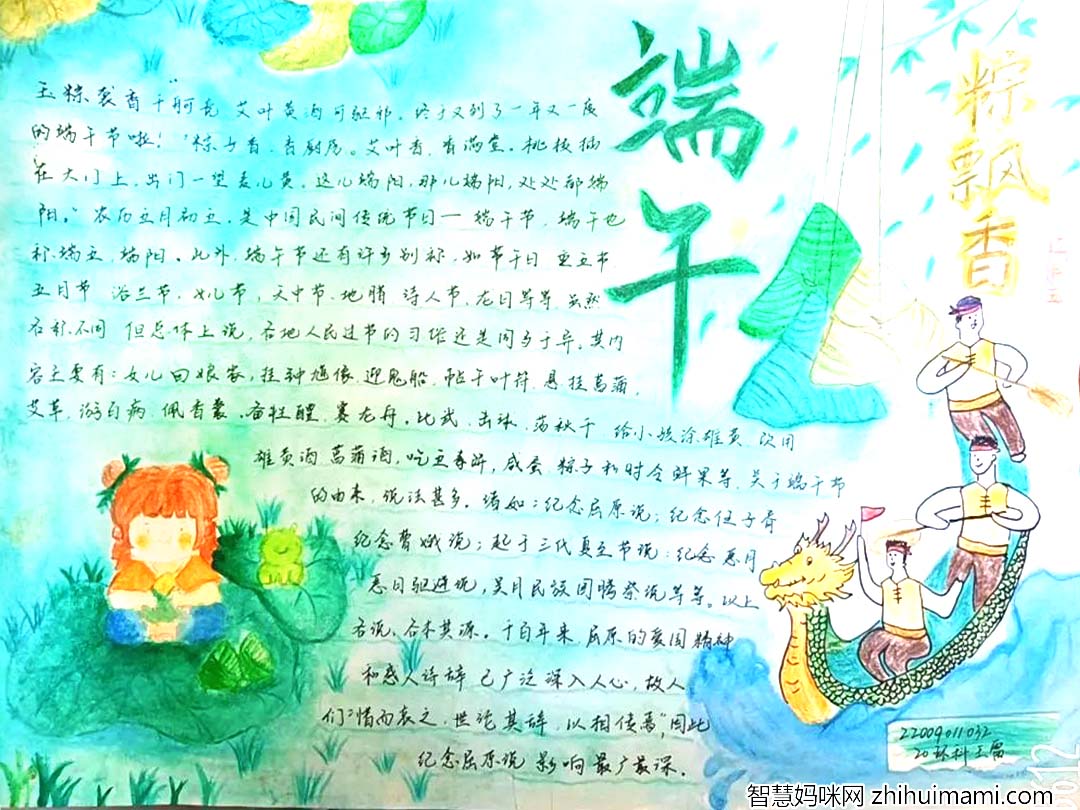 端午
粽飘香
玉粽袭香千舸竞 艾叶黄酒可驱邪。终于又到了一年又一度
的端午节啦！“粽子香，香厨房。艾叶香，香满堂。桃枝插
在大门上，出门一望麦儿黄。这儿端阳，那儿端阳，处处都端
阳。”农历五月初五，是中国民间传统节日—端午节，端午也
称端五，端阳。此外，端午节还有许多别称，如节午日 重五节
五月节 浴兰节，女儿节，天中节、地腊、诗人节、龙日等等，虽然
名称不同 但总体上说，各地人民过节的习俗还是同多于异。其内
容主要有：女儿回娘家，挂钟馗像，迎鬼船，帖午叶符，悬挂菖蒲，
艾草，游百病，佩香囊，备牲醴，赛龙舟，比武，击球，荡秋千 给小孩涂雄黄，饮用
雄黄酒 菖蒲酒，吃五毒饼，咸蛋 粽子和时令鲜果等，关于端午节
的由来，说法甚多，诸如：纪念屈原说；纪念伍子胥
纪念曹娥说；起于三代夏至节说：纪念 恶月
恶日驱避说，吴月民族图腾祭说等等。以上
各说，各本其源。千百年来，屈原的爱国精神
和感人诗辞 已广泛深入人心，故人
们“惜而哀之，世论其辞，以相传焉”，因此
纪念屈原说 影响最广最深。
22009011032
20环科
智慧妈咪网 zhihuimami.com